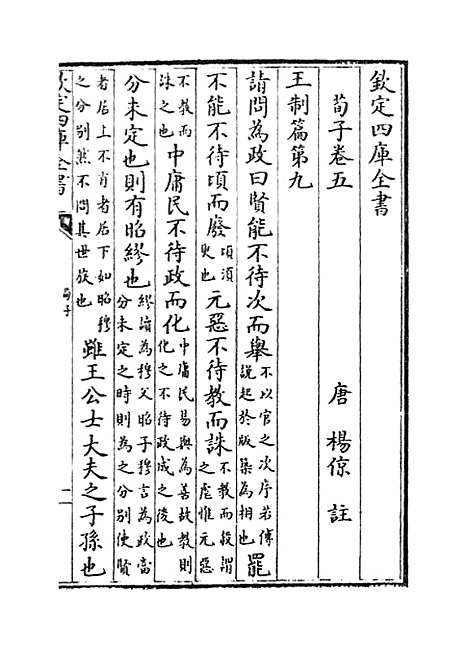 欽定四庫全書
荀子卷五 唐 楊倞 註
王制篇第九
請問為政曰賢能不待次而舉不以官之次序若傅說起於版築為相也罷
不能不待頃而廢頃須臾也元惡不待教而誅不教而殺謂之虐惟元惡
不教而誅之也中庸民不待政而化中庸民易與為善故教則化之不待政成之後也
分未定也則有昭繆也繆讀為穆父昭子穆言為政當分未定之時則為之分別使賢
者居上不肖者居下如昭穆之分別然不問其世族也雖王公士大夫之子孫也
欽定四庫全書
荀子